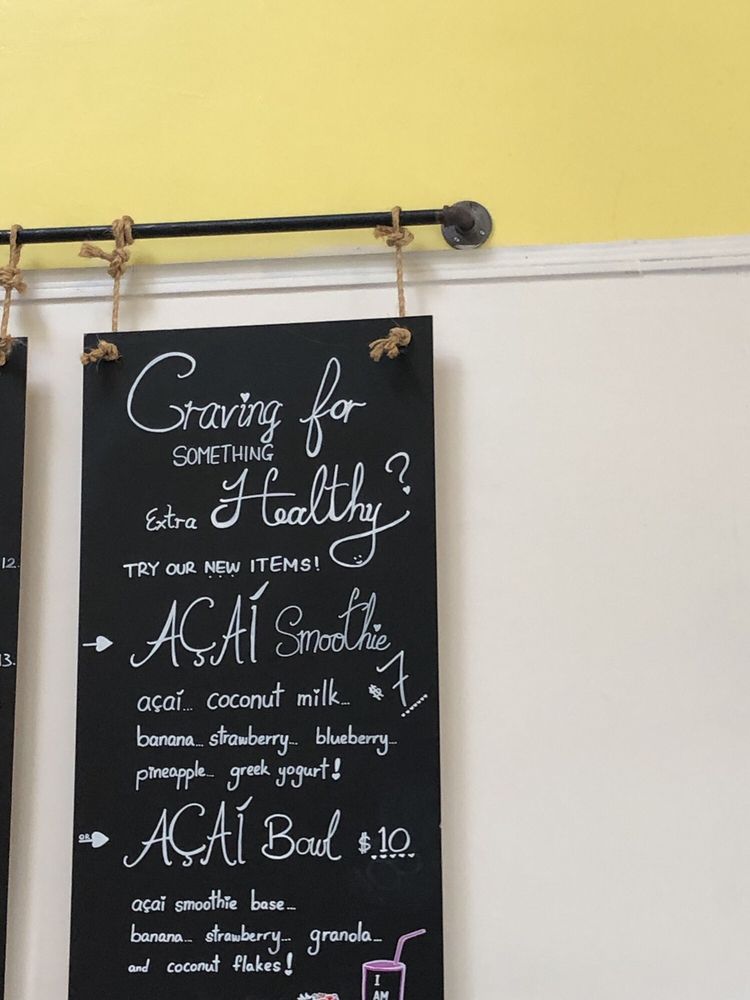 Craving for
SOMETHING
Extra Healthy?
TRY OUR NEW ITEMS!
AÇAÍ Smoothie
$7
açaí... coconut milk...
banana... strawberry... blueberry...
pineapple... greek yogurt!
OR AÇAÍ Bowl $10
açaí smoothie base...
banana... strawberry... granola...
and coconut flakes!
I
AM
12.
13.